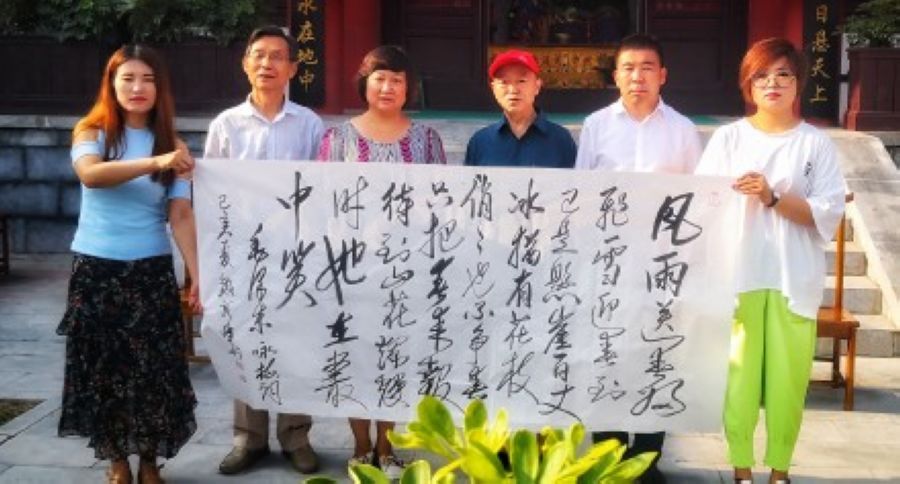 日悬天上
水在地中
风雨送春归
飛雪迎春到
已是悬崖百丈
冰猶有花枝
俏〻也不争春
只把春来報
待到山花爛漫
时她在叢
中笑
毛澤東咏梅詞
己亥夏